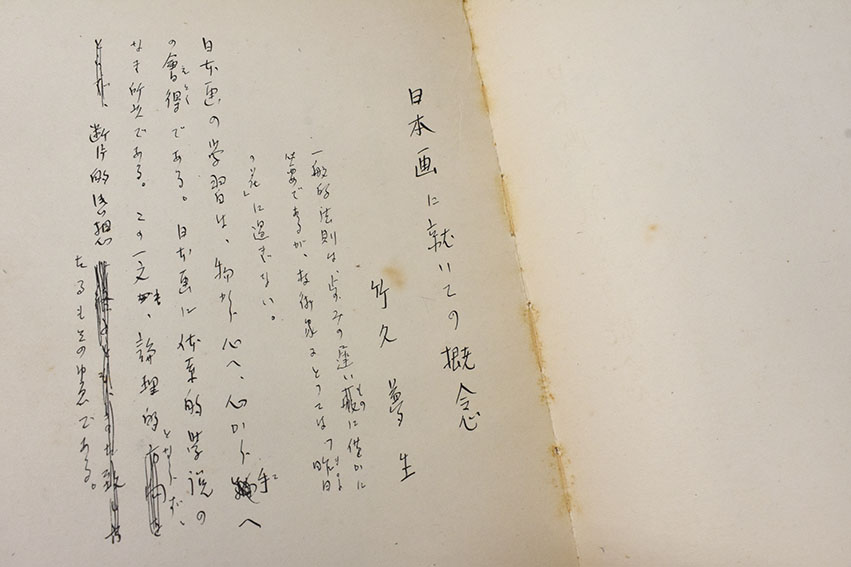 日本画に就いての概念
竹久夢生
一般的法則は、歩みの遅い般に僅かに
必要であるが、技術家にとっては「昨日
の花」に過ぎない。
日本画の学習は、物から心へ、心から手へ
の會得である。日本画に体系的学説の
なき所以である。この一文も、論理的
断片的感想
たるもその為である。